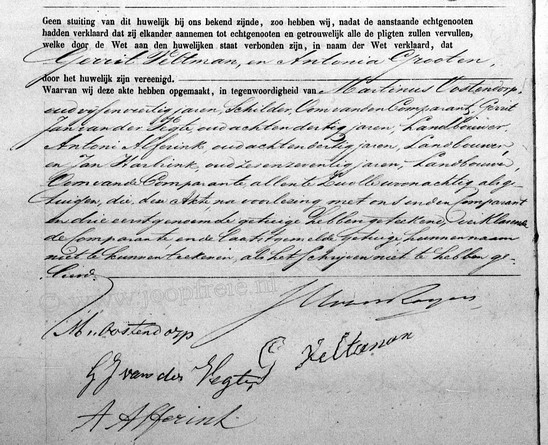 Geen stuiting van dit huwelijk bij ons bekend zijnde, zoo hebben wij, nadat de aanstaande echtgenooten
hadden verklaard dat zij elkander aannemen tot echtgenooten en getrouwelijk alle de pligten zullen vervullen,
welke door de Wet aan den huwelijken staat verbonden zijn, in naam der Wet verklaard, dat
Gerrit Veltman, en Antonia Grooten,
door het huwelijk zijn vereenigd.
Waarvan wij deze akte hebben opgemaakt, in tegenwoordigheid van Martinus Oostendorp,
oud vijfenveertig jaren, Schilder, Oom van den Comparant, Gerrit
Jan van der Vegte, oud achtendertig jaren, Landbouwer
Antoni Afferink, oud achtendertig jaren, Landbouwer
en Jan Harbrink, oud zesenzeventig jaren, Landbouwer
Oom van de Comparante, allen te Zwolle woonachtig als ge-
tuigen, die, deze Akte na voorlezing met ons en den Comparant
en drie eerstgenoemde getuigen hebben geteekend, verklarende
de Comparante en de laatstgemelde getuige hunnen naam
niet te kunnen teekenen, als het schrijven niet te hebben ge-
leerd.
© www.joopfreie.nl
M. Oostendorp
G J van der Vegte
G Veltman
A Afferink